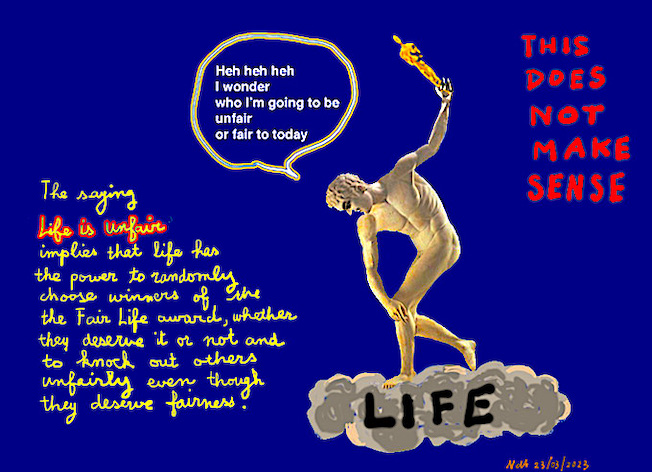 Heh heh heh
I wonder
who I'm going to be
unfair
or fair to today
THIS
DOES
NOT
MAKE
SENSE
The saying
Life is unfair
implies that life has
the power to randomly
choose winners of the
the Fair Life award, whether
they deserve it or not and
to knock out others
unfairly even though
they deserve fairness.
LIFE
23/03/2023